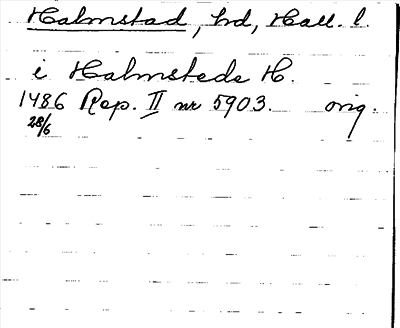 Halmstad, hd, Hall. l.
i Halmstede H.
1486 Rep. II nr 5903. orig.
28/6